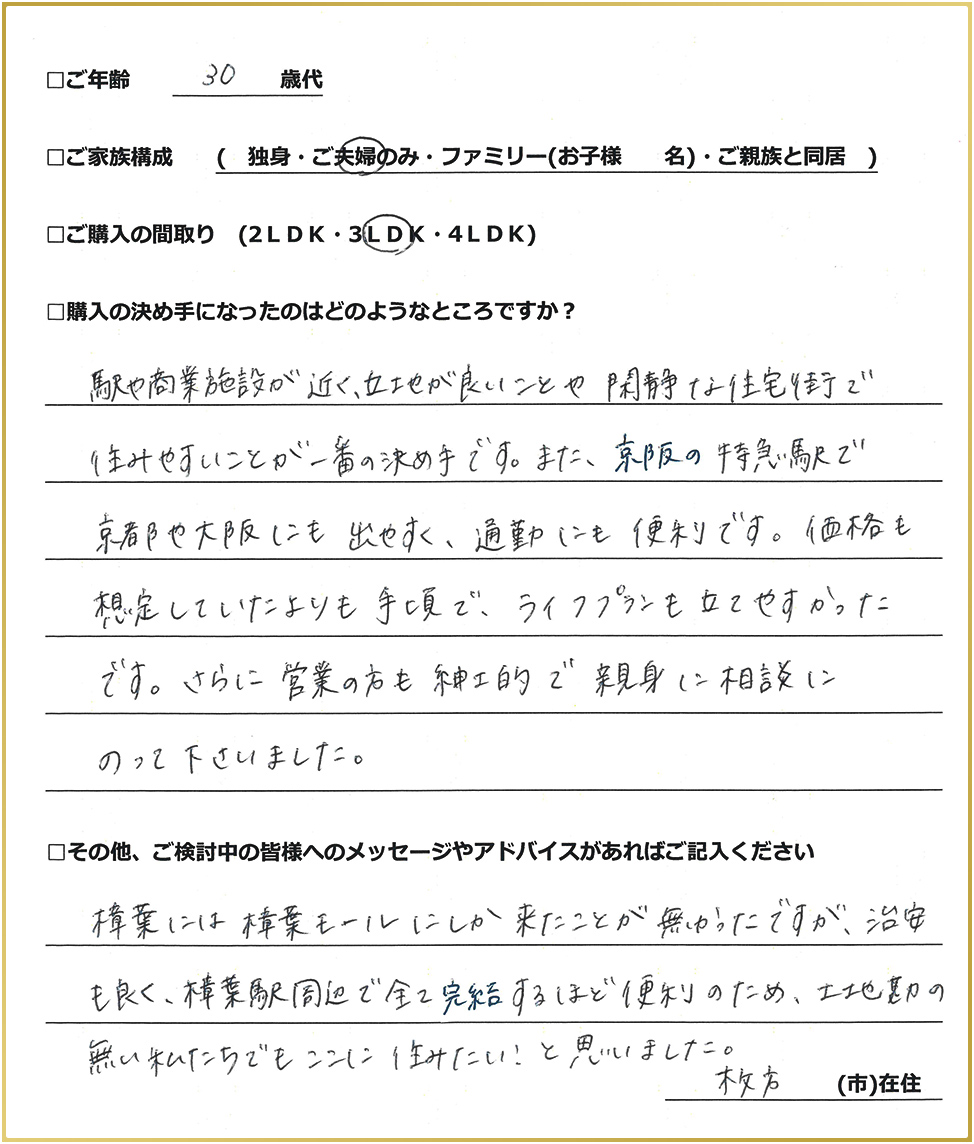 □ご年齢 30 歳代
□ご家族構成 ( 独身・ご夫婦のみ・ファミリー(お子様 名)・ご親族と同居 )
□ご購入の間取り (2LDK・3LDK・4LDK)
□購入の決め手になったのはどのようなところですか？
駅や商業施設が近く、立地が良いことや閑静な住宅街で
住みやすいことが一番の決め手です。また、京阪の特急駅で
京都や大阪にも出やすく、通勤にも便利です。価格も
想定していたよりも手頃で、ライフプランも立てやすかった
です。さらに営業の方も紳士的で親身に相談に
のって下さいました。
□その他、ご検討中の皆様へのメッセージやアドバイスがあればご記入ください
樟葉には樟葉モールにしか来たことが無かったですが、治安
も良く、樟葉駅周辺で全て完結するほど便利のため、土地勘の
無い私たちでもここに住みたい！と思いました。
枚方 (市)在住